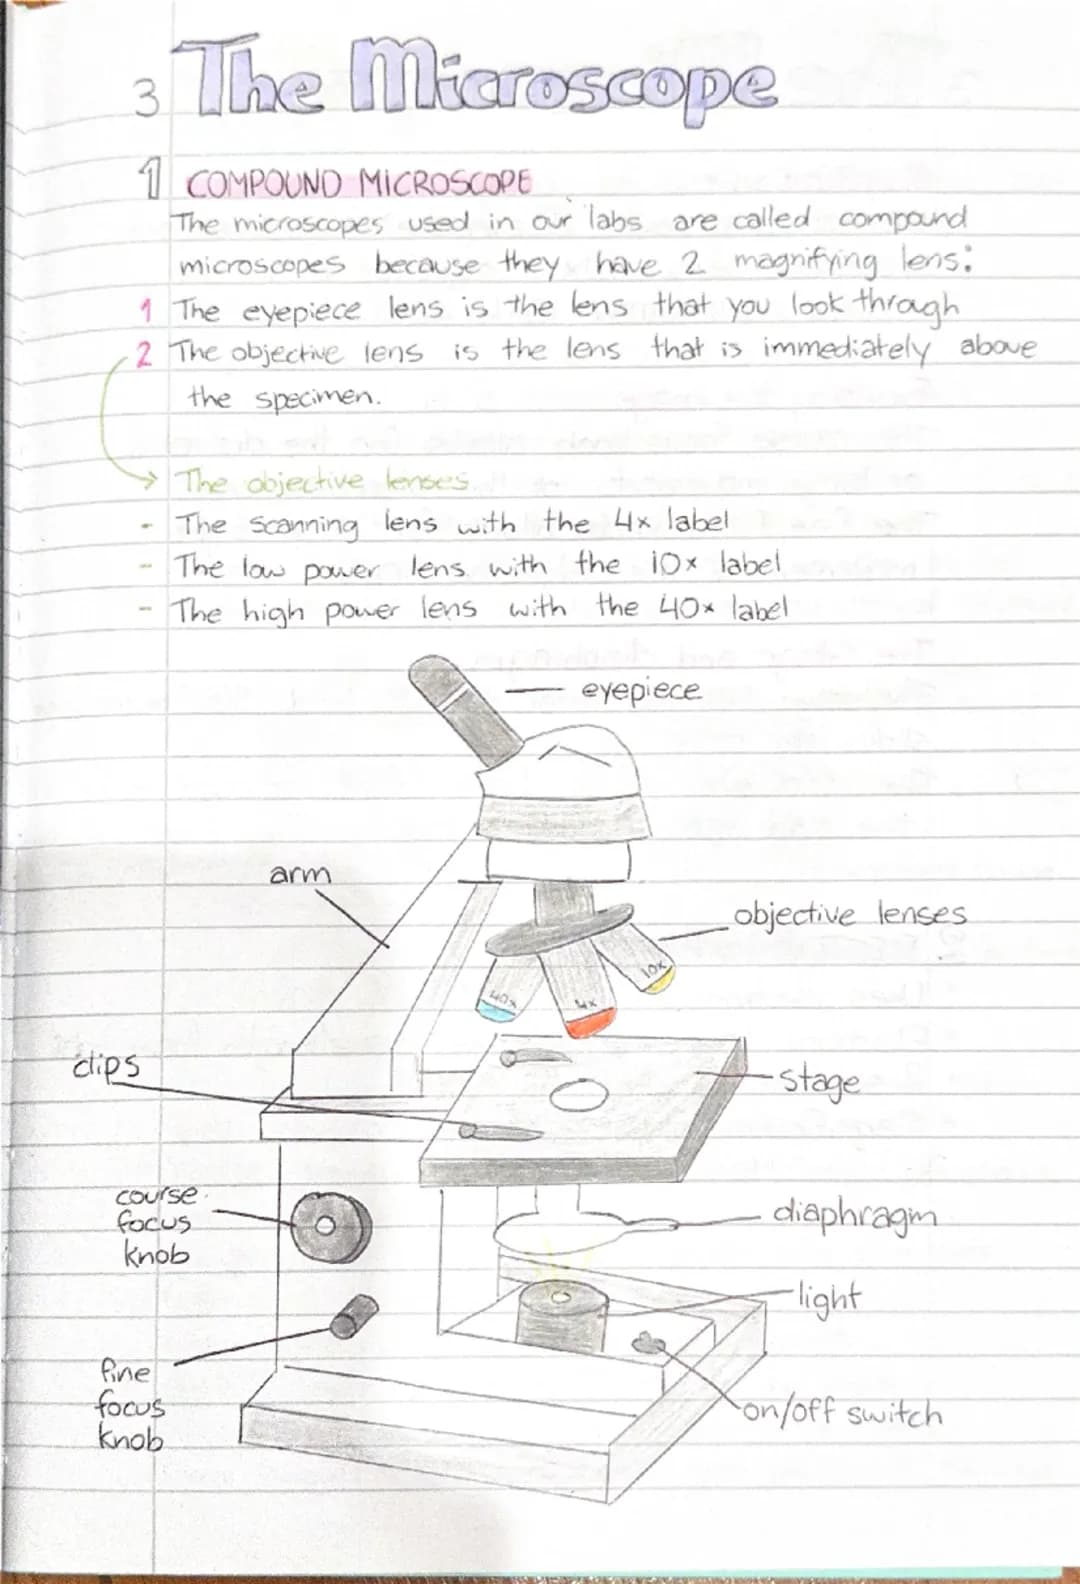 3 The Microscope
1 COMPOUND MICROSCOPE
The microscopes used in our labs are called compound
microscopes because they have 2 magnifying lens:
1 The eyepiece lens is the lens that you look through
2 The objective lens is the lens that is immediately above
the specimen.
→ The objective lenses
- The scanning lens with the 4x label
- The low power lens with the 10x label
- The high power lens with the 40x label
eyepiece
arm
objective lenses
10x
40x
4x
clips
stage
course
focus
knob
diaphragm
light
fine
focus
knob
on/off switch